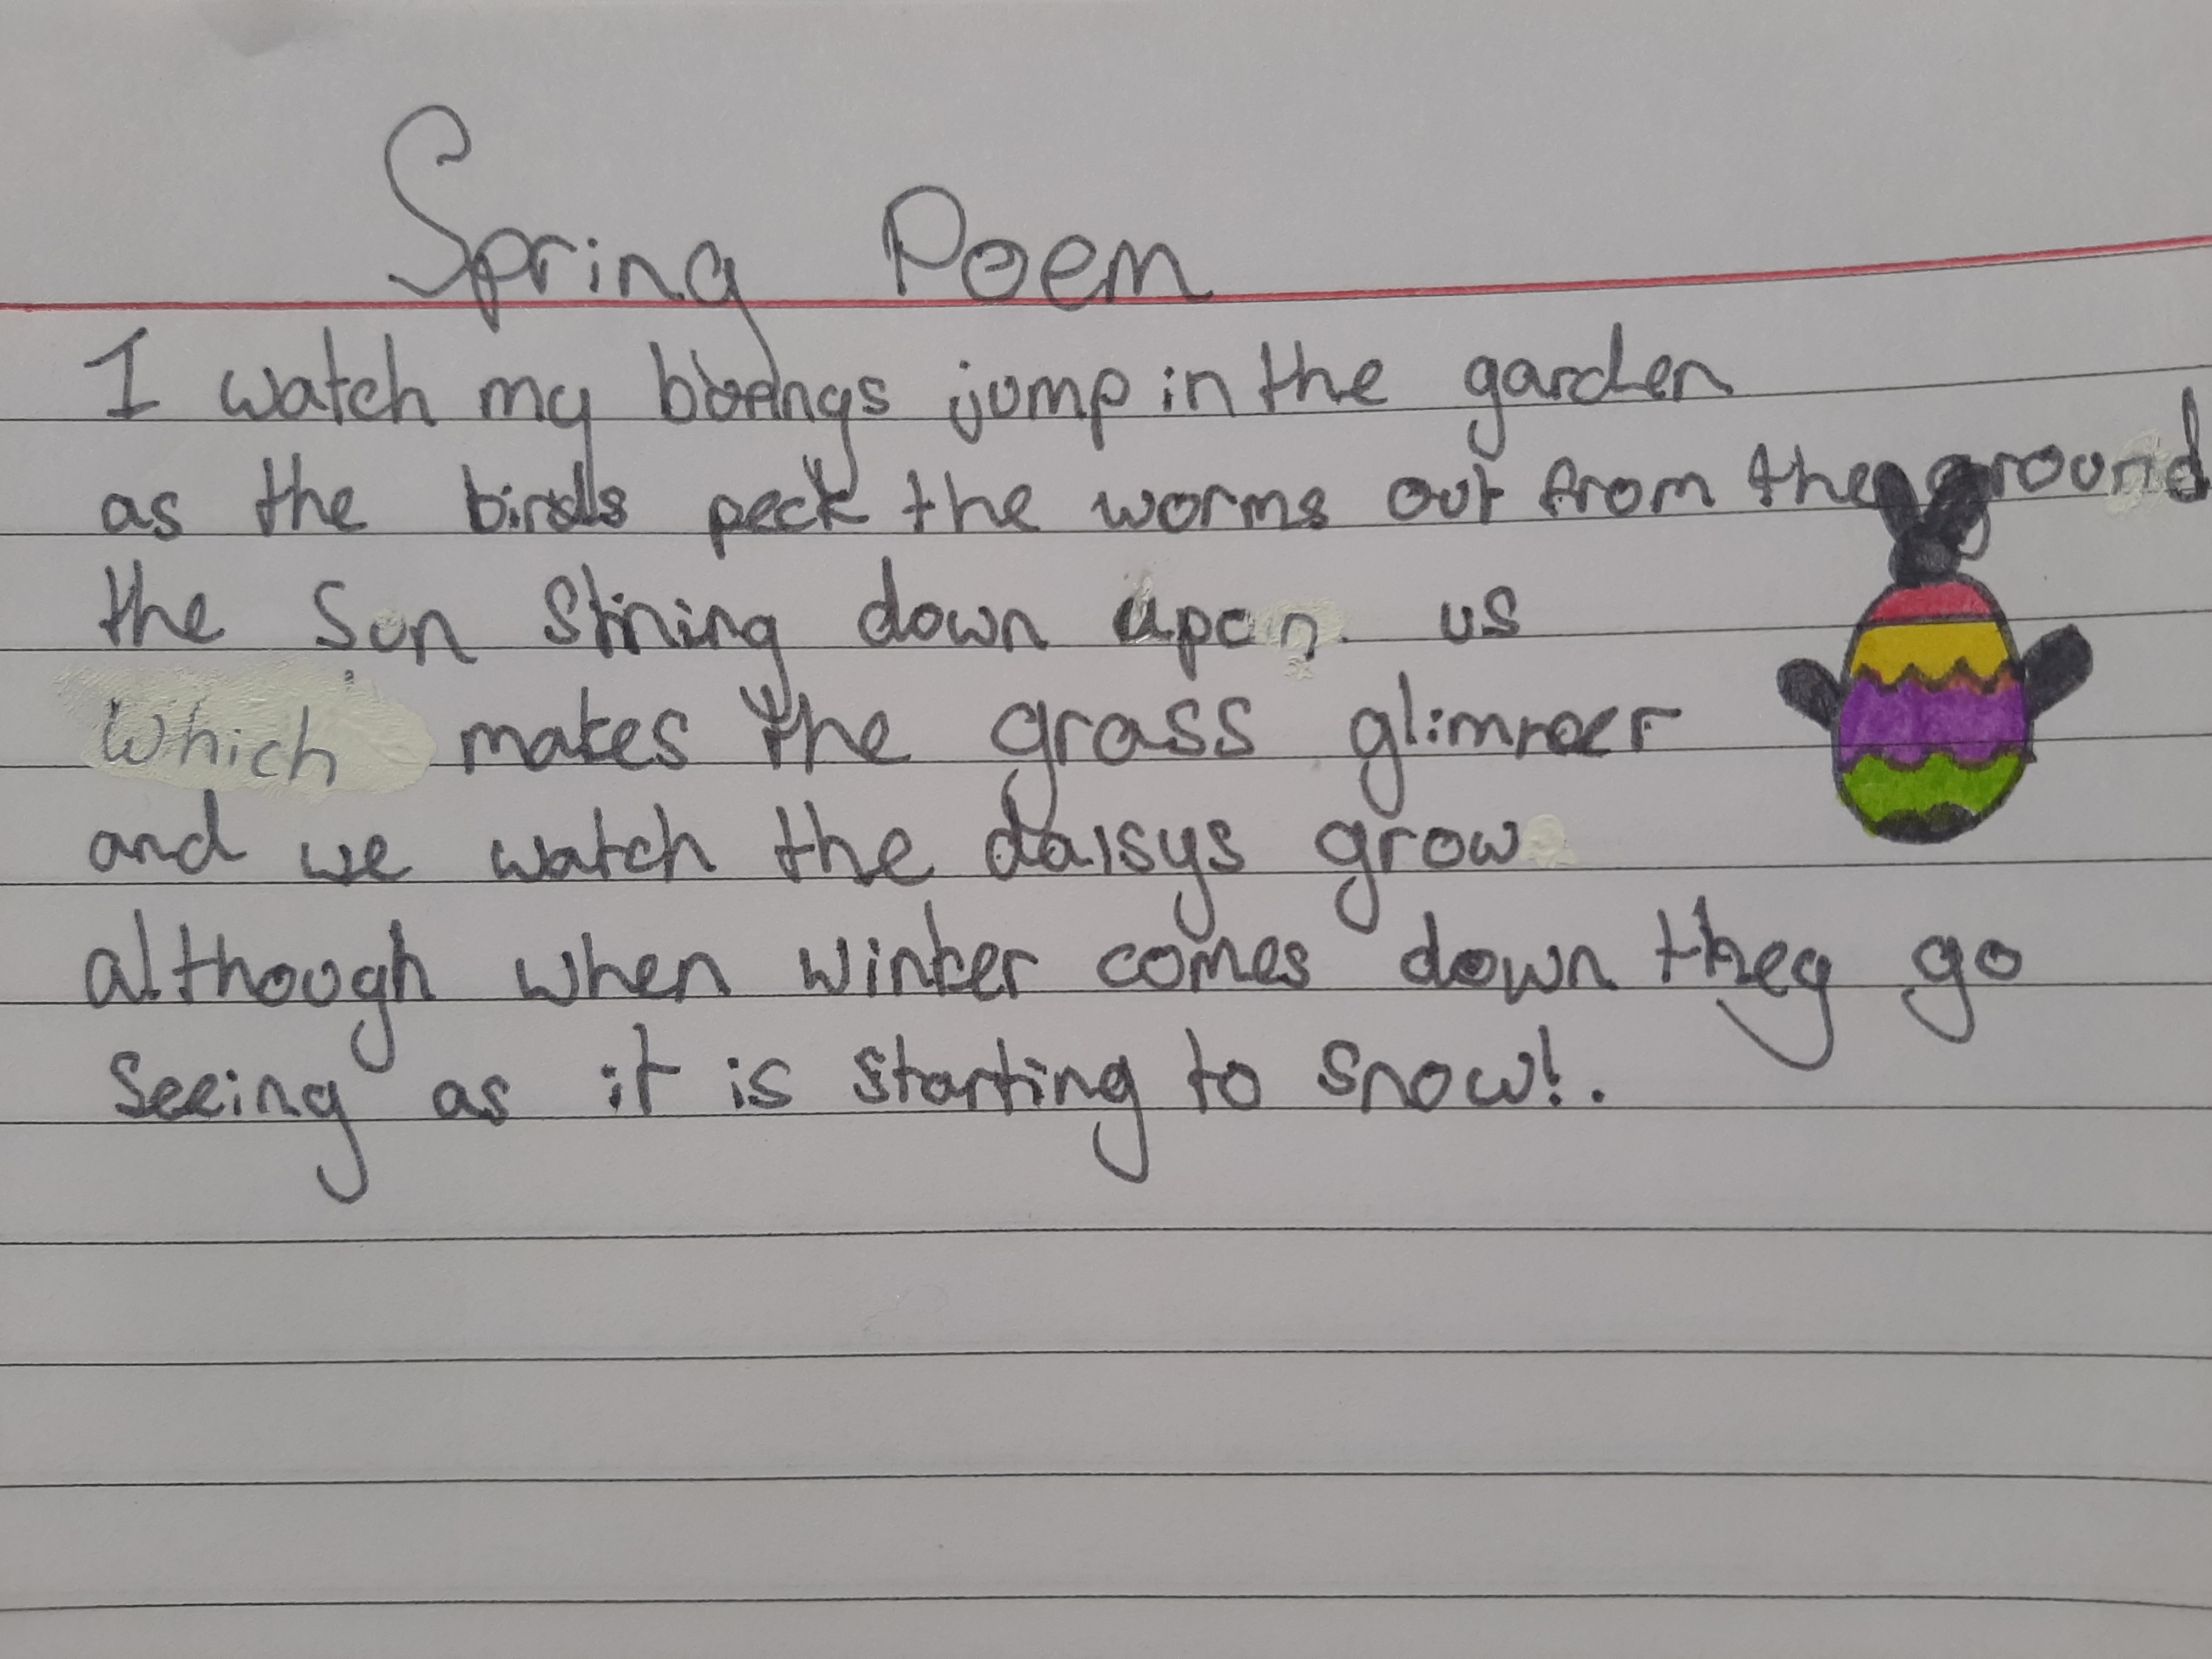 Spring Poem
I watch my jump in the garden
as the birds peck the worms out from the ground
the sun shining down upon us
which makes the grass glimmer
and we watch the daisys grow
although when winter comes down they go
seeing as it is starting to snow!.